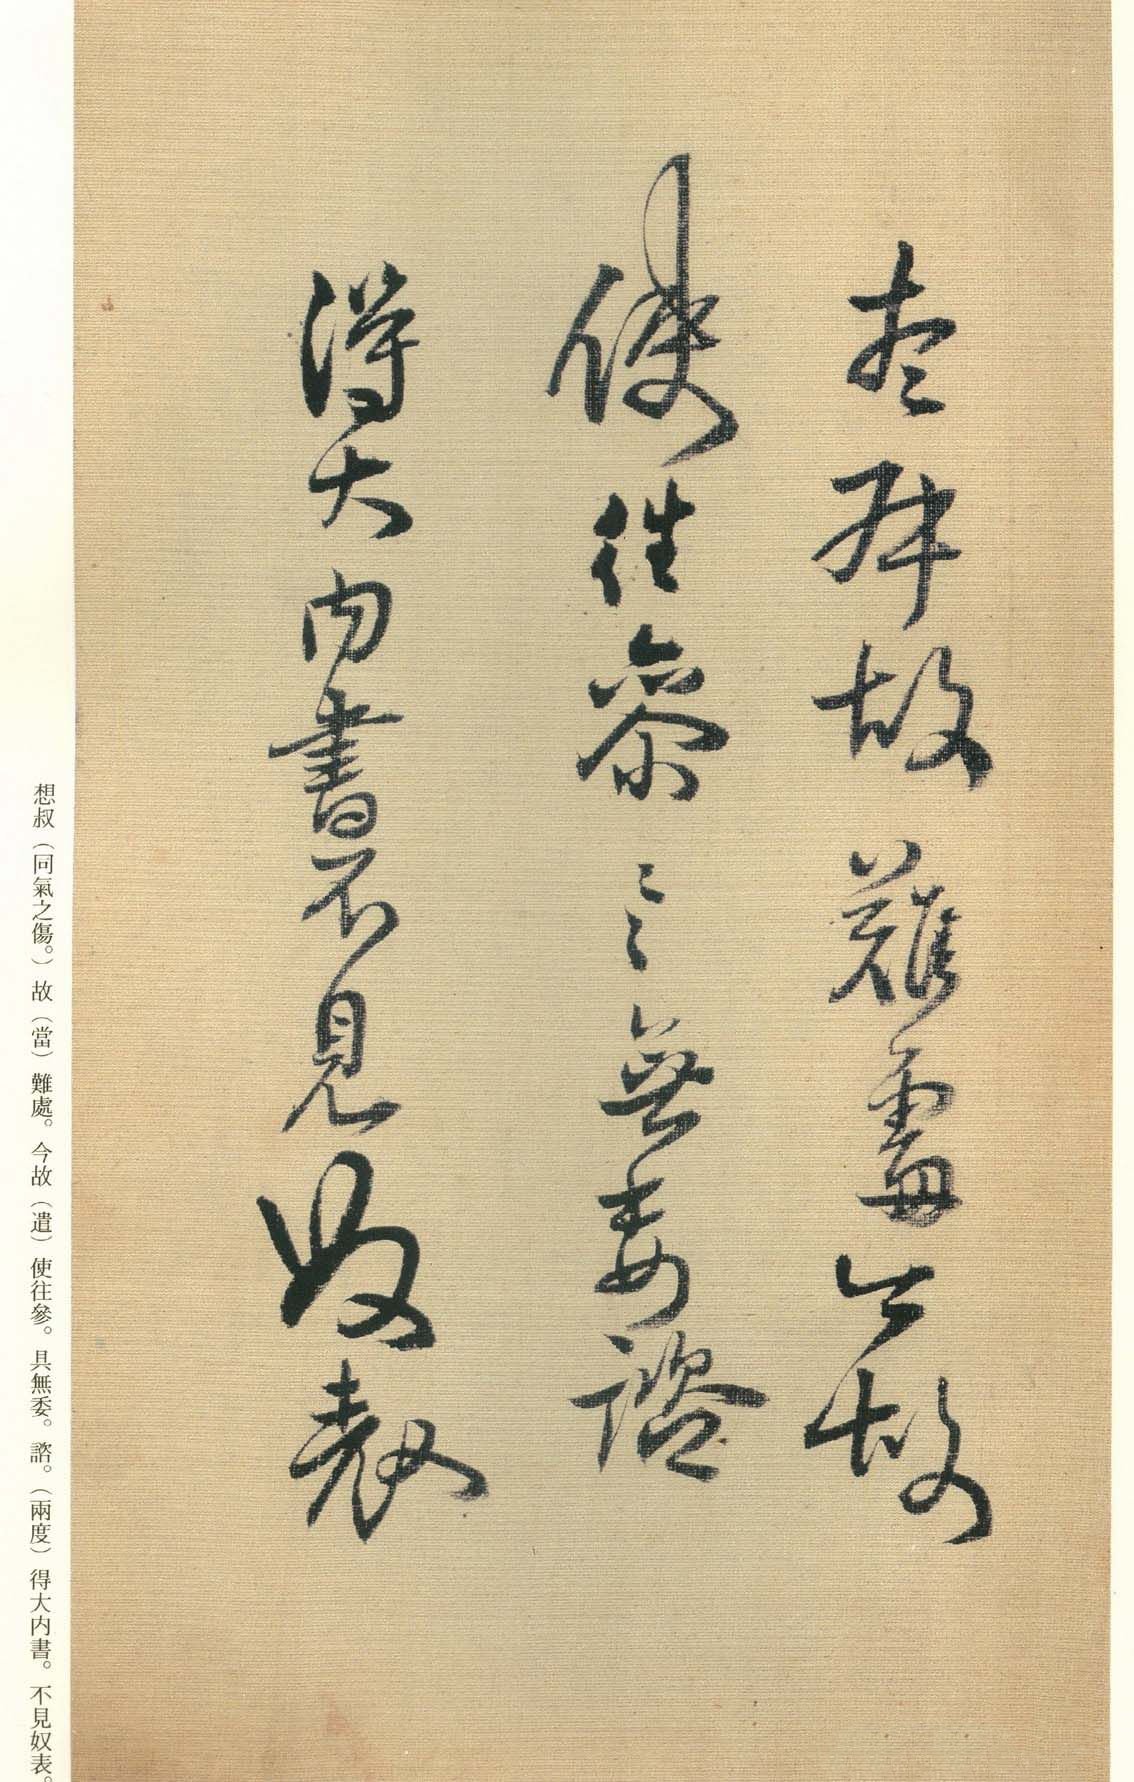 想叔故難處今故
使往參具無委諮
得大内書不見奴表
想叔（同氣之傷。）故（當）難處。今故（遣）使往參。具無委。諮。（兩度）得大内書。不見奴表。